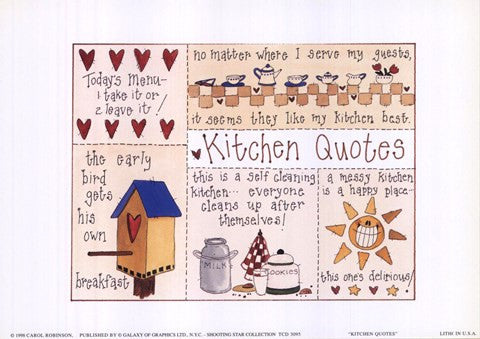 Today's Menu-
1 take it or
2 leave it!
no matter where I serve my guests,
it seems they like my kitchen best.
Kitchen Quotes
the early
bird
gets
his
own
breakfast
this is a self cleaning
kitchen... everyone
cleans up after
themselves!
MILK
COOKIES
a messy kitchen
is a happy place...
this one's delirious!
© 1998 CAROL ROBINSON, PUBLISHED BY © GALAXY OF GRAPHICS LTD., N.Y.C. - SHOOTING STAR COLLECTION TCD 3095 "KITCHEN QUOTES" LITHO IN U.S.A.